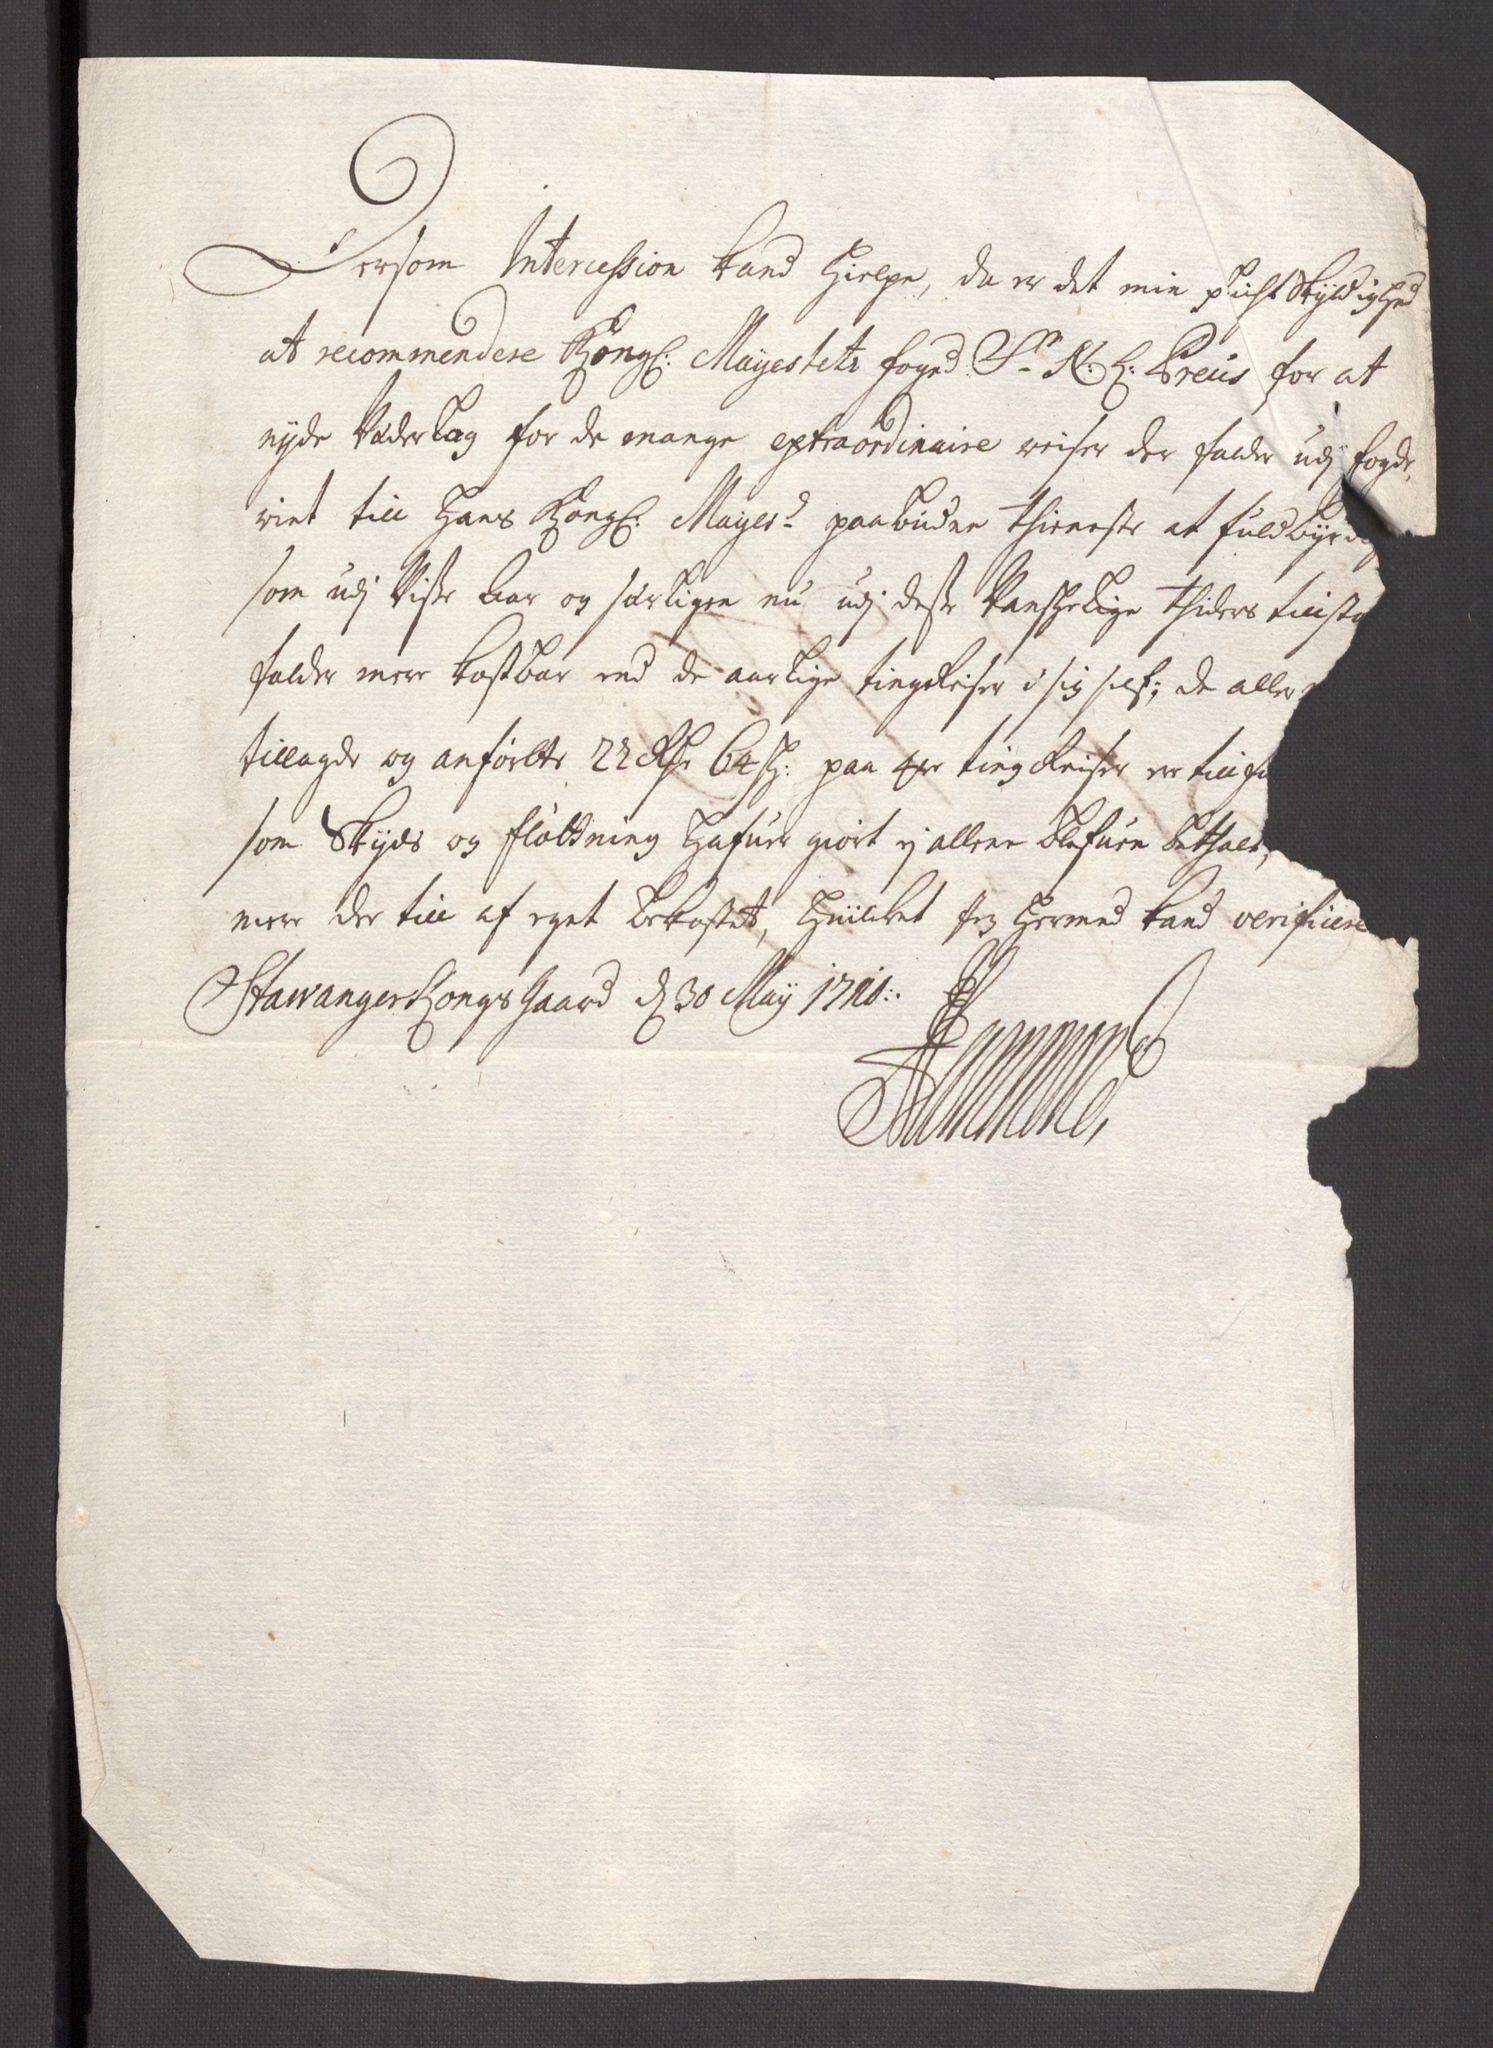 Dersom Intercession kand hielpe, da er det min pligt skyldighed
at recommendere Kongl: Mayestets foged Sr. N: C: Preus for at
nyde vederlag for de mange extraordinaire reiser der falder udj fogde,
riet till Hans Kongl: Mayes: paabudne thieneste at fuldbyrde
som udj visse aar og særligen nu udj desse vanskelige thiders tillsta
falder mere kostbar end de aarlige tingreiser i sig self; de aller
tillagde og anførte 22 Rdr 64 s: paa 4re ting Reiser er till
som skyds og fløttning hafuer giort ej allene blefuen bethalt,
mere der till af eget bekostet, huilcket jeg hermed kand verificere
Stawanger Kongsgaard d 30 May 1710::